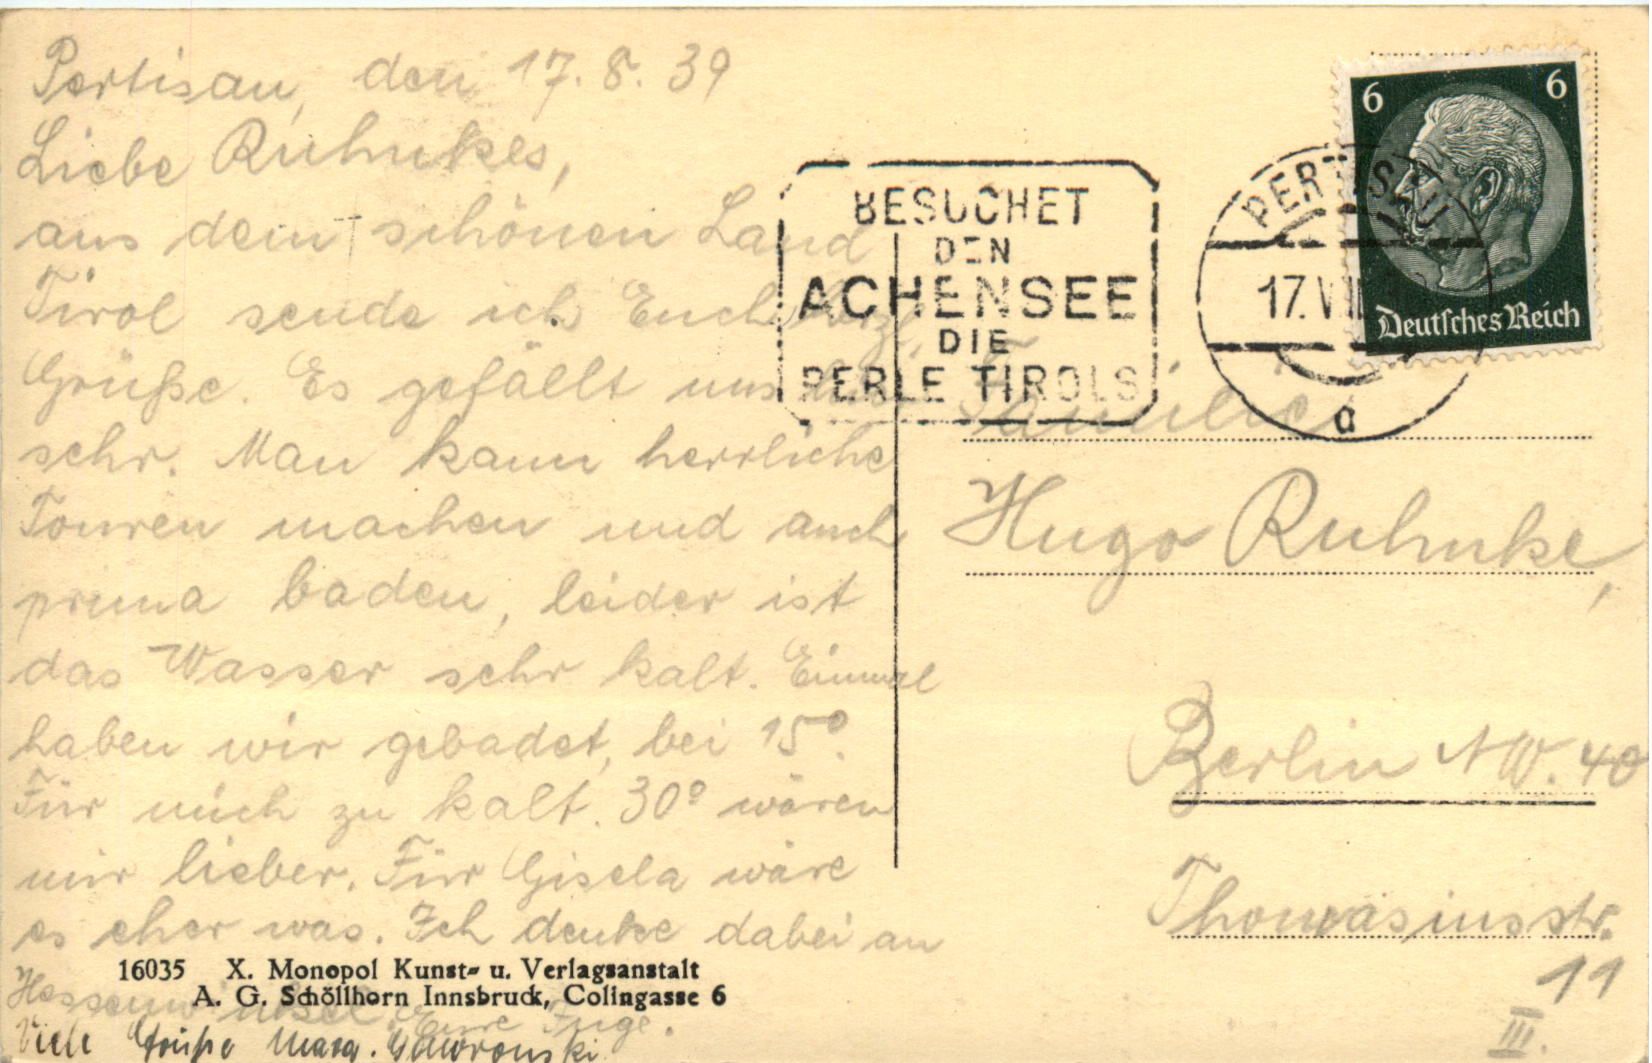 Pertisau, den 17. 8. 39
Liebe Ruhnkes,
aus dem schönen Land
Tirol sende ich Euch herzl.
Grüße. Es gefällt uns
sehr. Man kann herrliche
Touren machen und auch
prima baden, leider ist
das Wasser sehr kalt. Einmal
haben wir gebadet, bei 15°.
Für mich zu kalt. 30° wären
mir lieber. Für Gisela wäre
es eher was. Ich denke dabei an
Hessenwinkel. Eure Inge.
Viele Grüße Marg. Gawronski
16035 X. Monopol Kunst- u. Verlagsanstalt
A. G. Schöllhorn Innsbruck, Colingasse 6
BESUCHET
DEN
ACHENSEE
DIE
PERLE TIROLS
PERTISAU
17. VIII
a
6 6
Deutsches Reich
Familie
Hugo Ruhnke,
Berlin NW. 40
Thomasiusstr.
11
III.